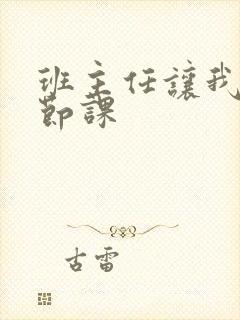 班主任讓我
節課
古雷